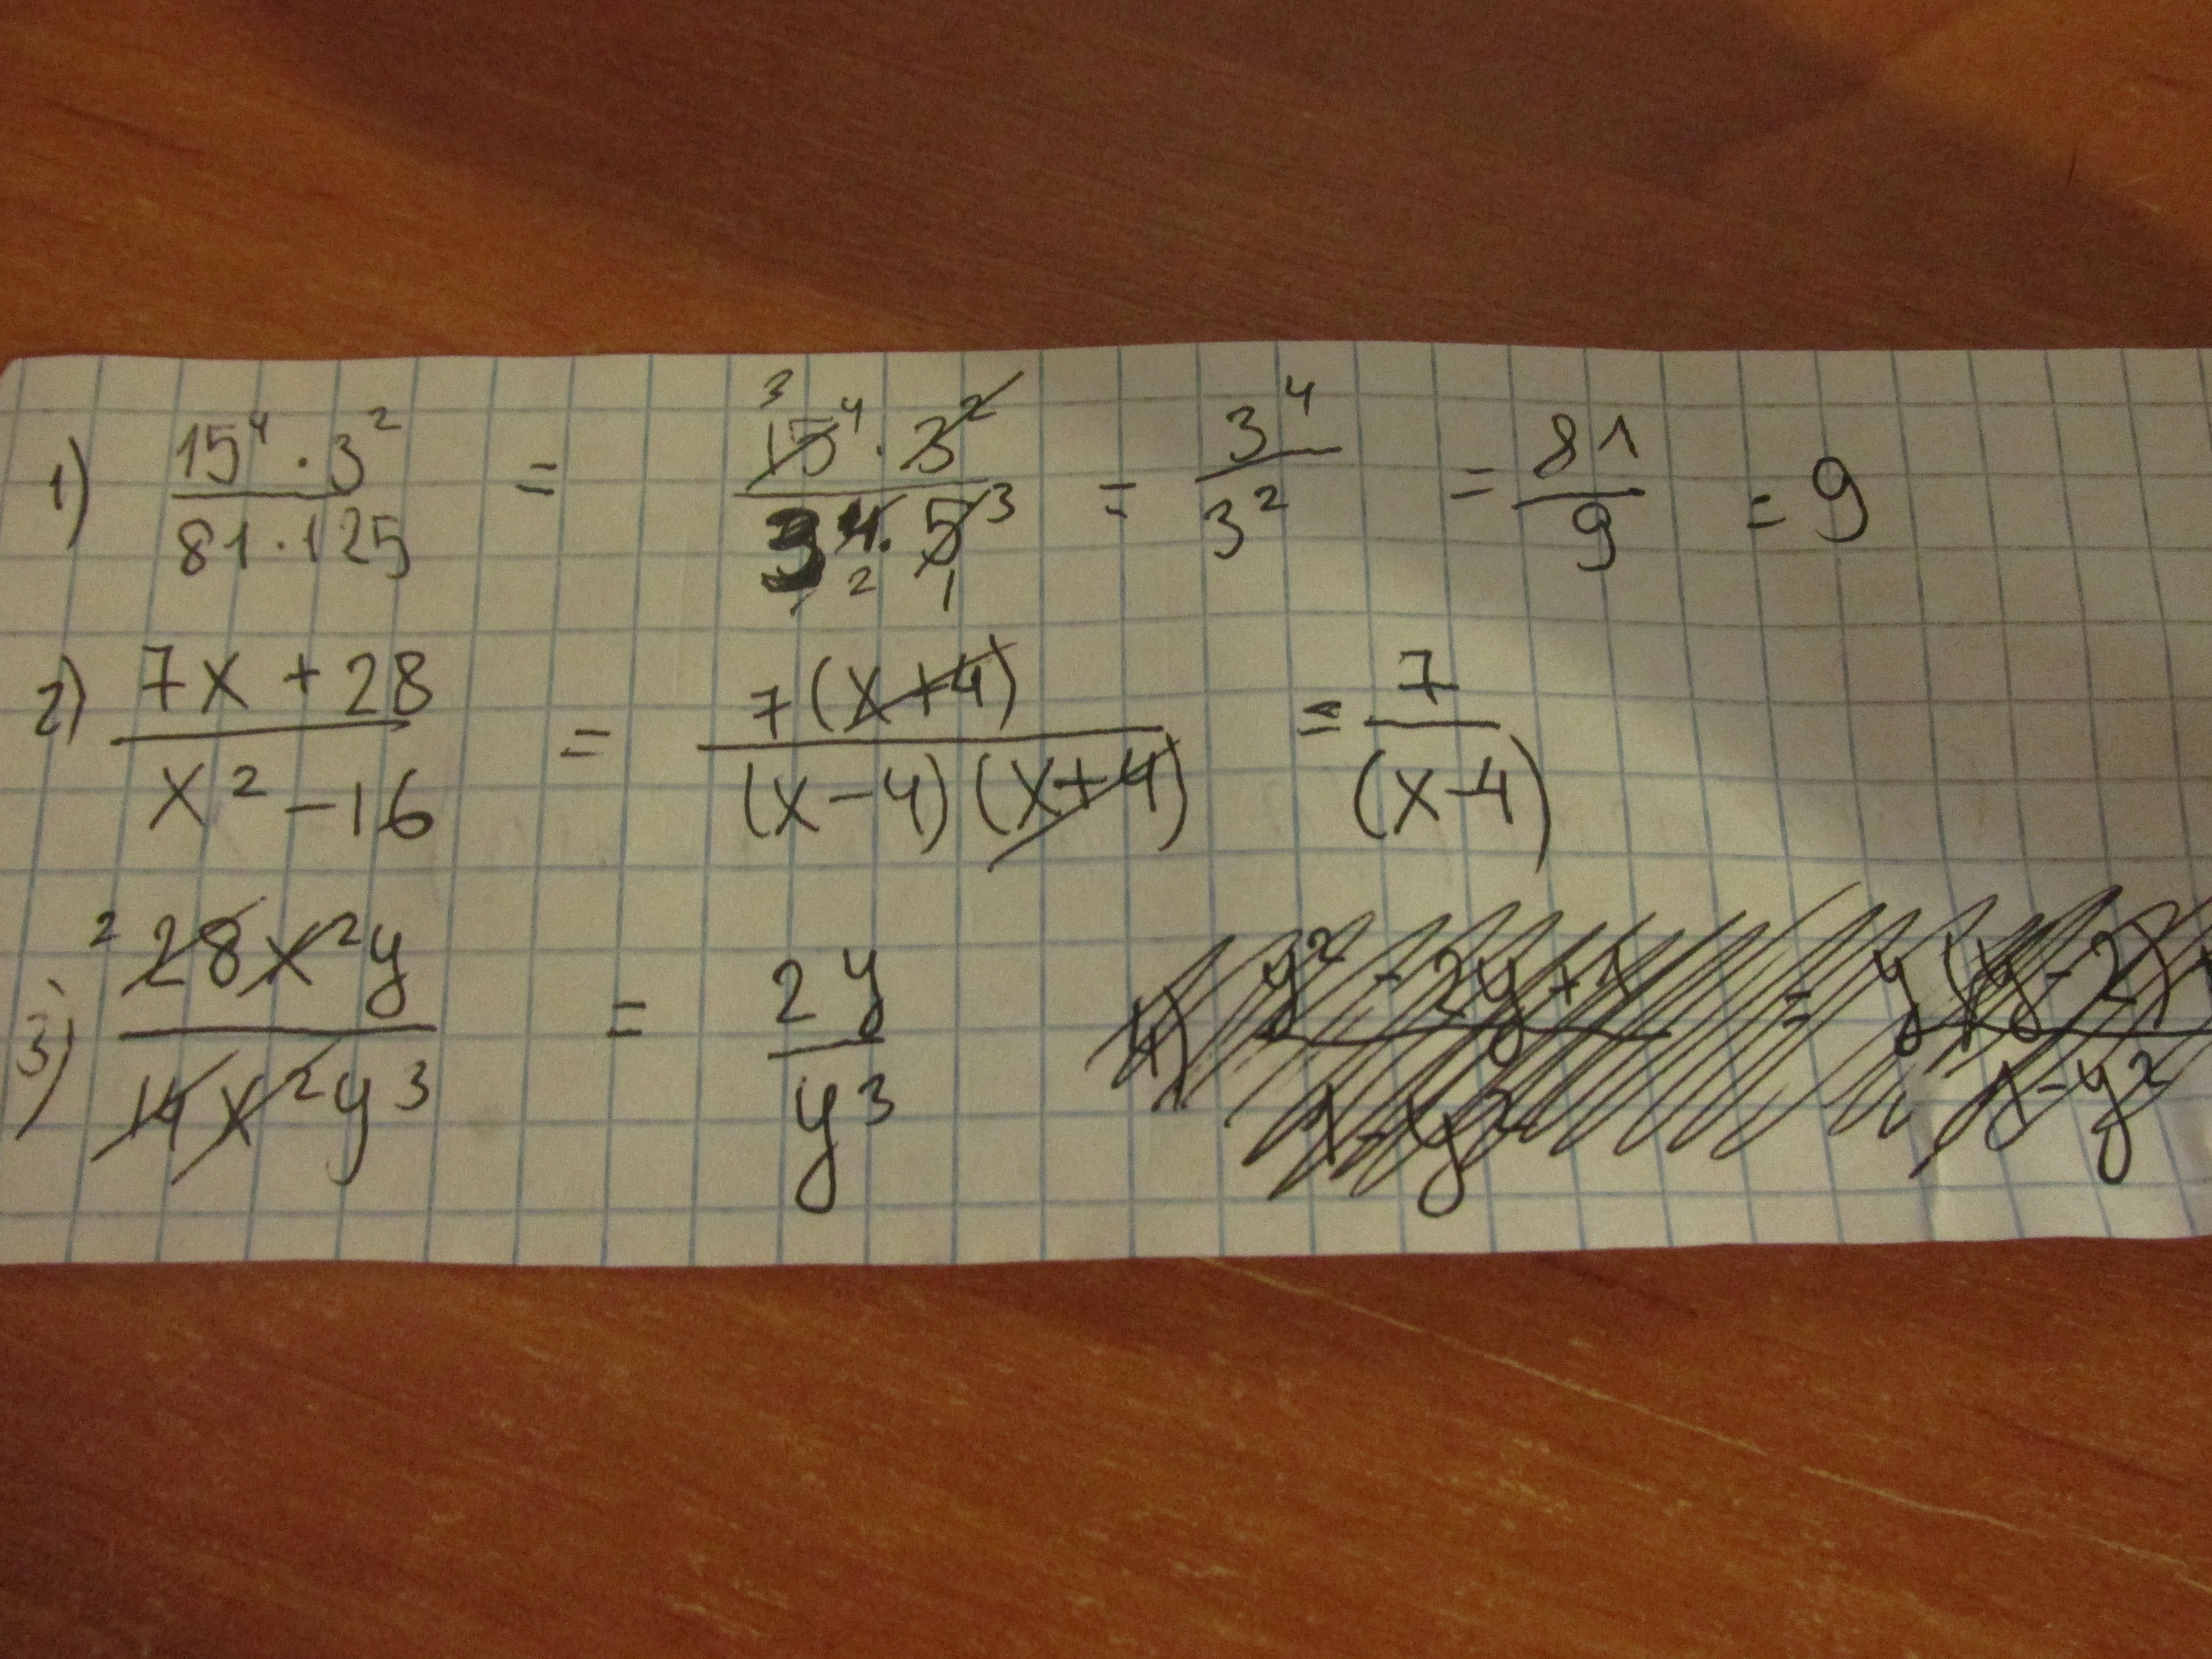 1) 15⁴ · 3² / 81 · 125 = ³15⁴ · 3² / 3⁴₂ · 5³₁ = 3⁴ / 3² = 81 / 9 = 9
2) 7x + 28 / x² - 16 = 7(x+4) / (x-4)(x+4) = 7 / (x-4)
3) ²28x²y / 14x²y³ = 2y / y³
4) y² - 2y + 1 / 1 - y² = y(y-2)+ / 1-y²